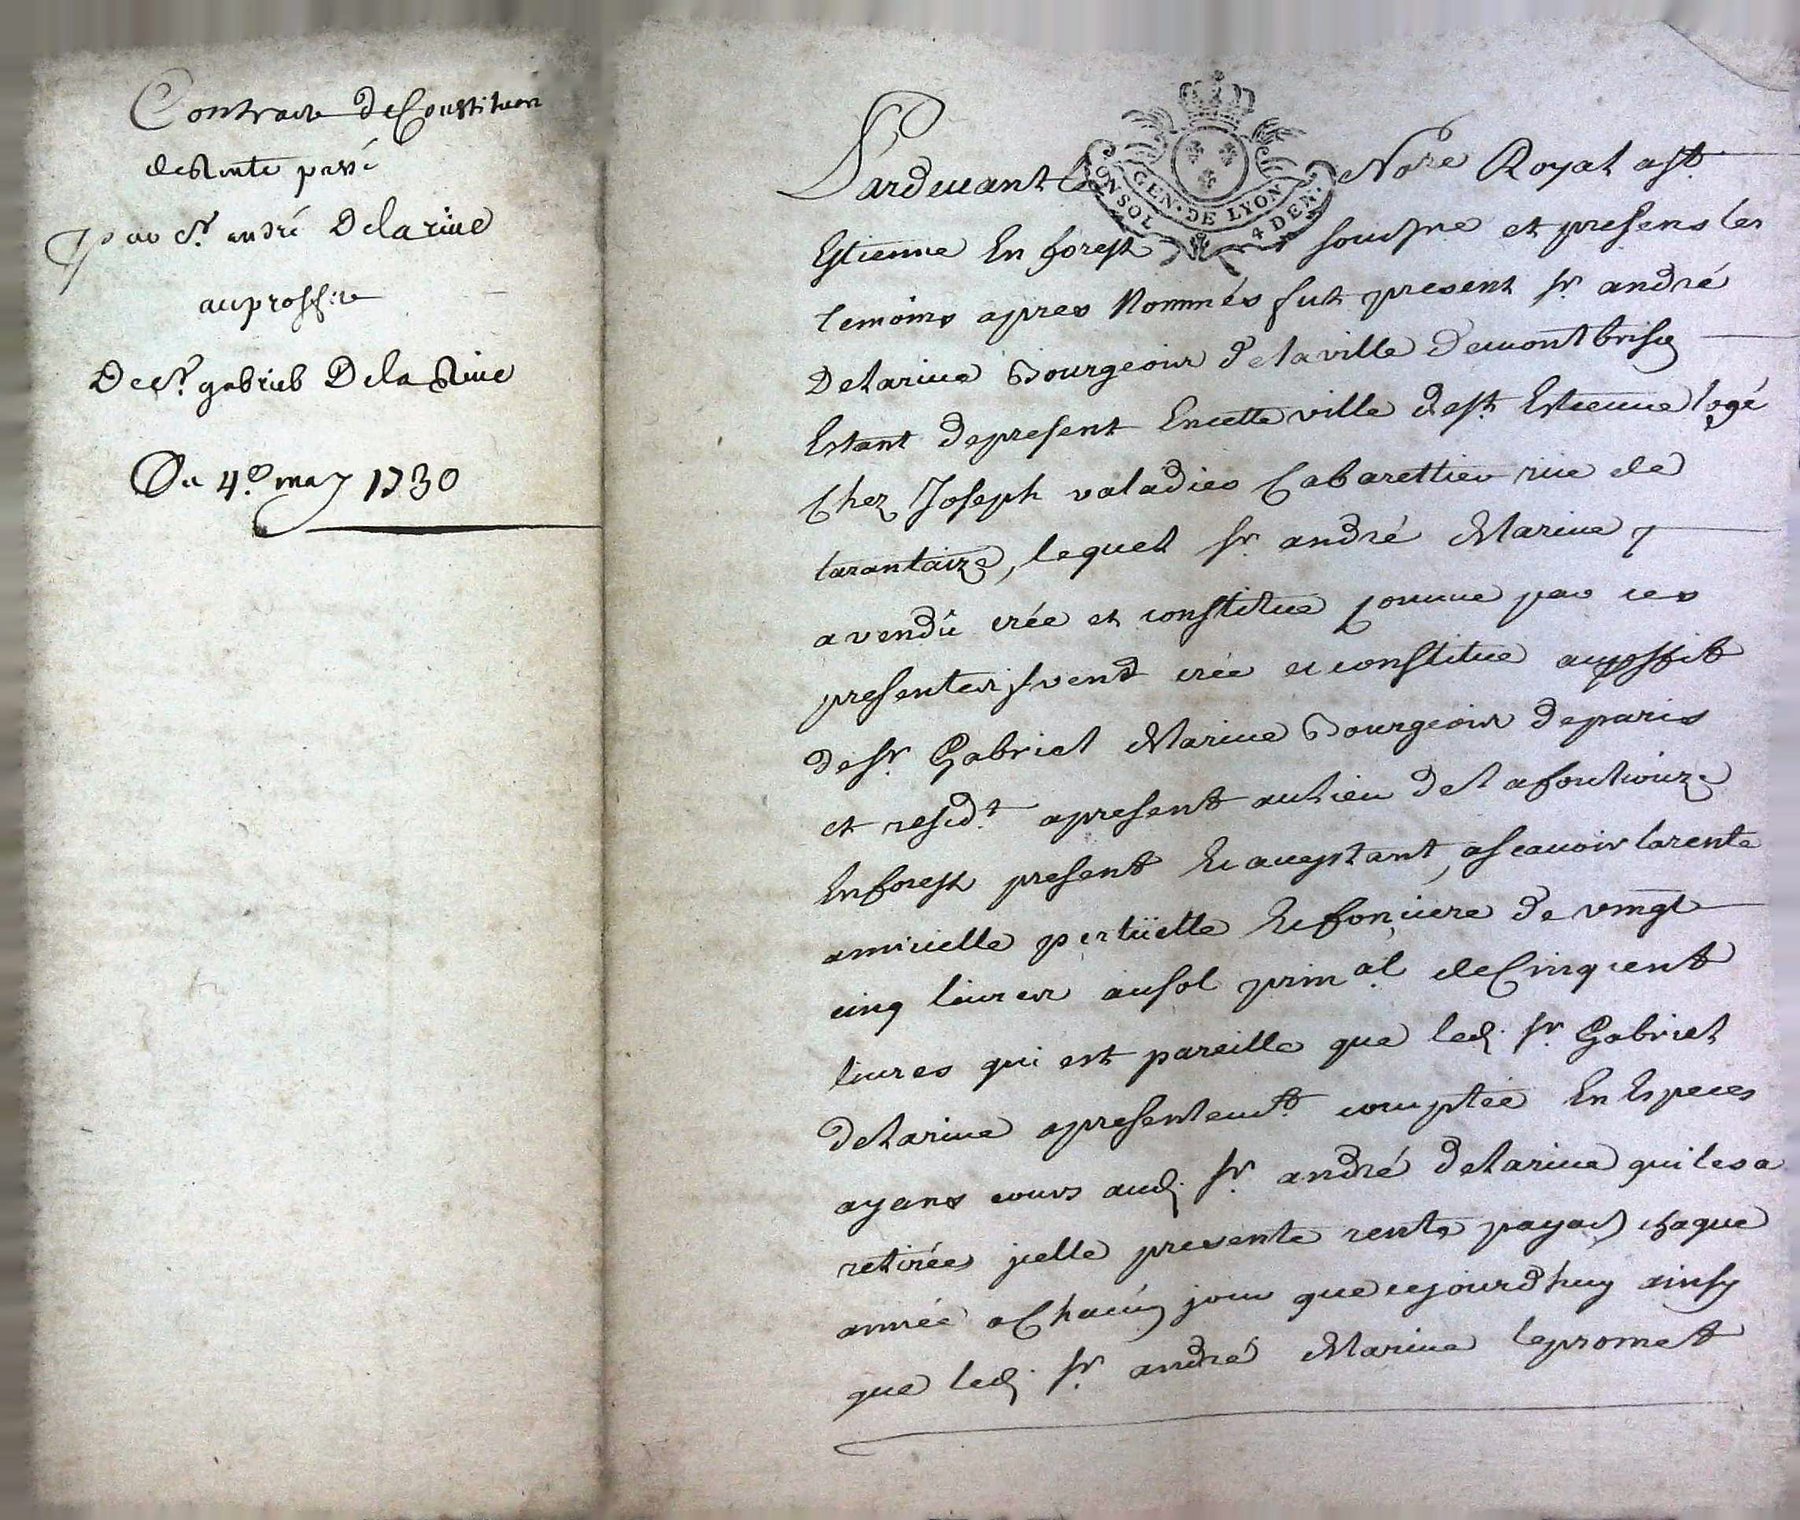 Contract de Constituon
de Rente passé
par Sr. andré Delarive
auproffit
De Sr. gabriel Dela Rive
Du 4e. may 1730
Pardevant le Nore Royal a st.
Estienne En forest soussne et presens les
temoins apres Nommés fut present sr. andré
Delarive Bourgeois de la ville demontbrison
Estant depresent Encette ville de st. Estienne logé
Chez Joseph valadier Cabarettier rüe de
tarantaize, lequel sr. andré Delarive
a vendû crée et constitue comme par ces
presentes vend crée et constitue auproffit
de sr. Gabriel Delarive Bourgeois deparis
et residt. apresent au lieu de la
Enforest present Et aceptant, ascavoir larente
annuelle pertüelle Et fonciere de vingt
cinq livres au sol prinal. de Cinq cent
livres qui est pareille que led. sr. Gabriel
delarive a presentemt. comptée En Especes
ayans cours aud. sr. andré delarive qui les a
retirées jcelle presente rente chaque
année a Chacun jour que cejourdhuy ainsy
que led. sr. andré Delarive lepromet
GEN. DE LYON
4 DEN.